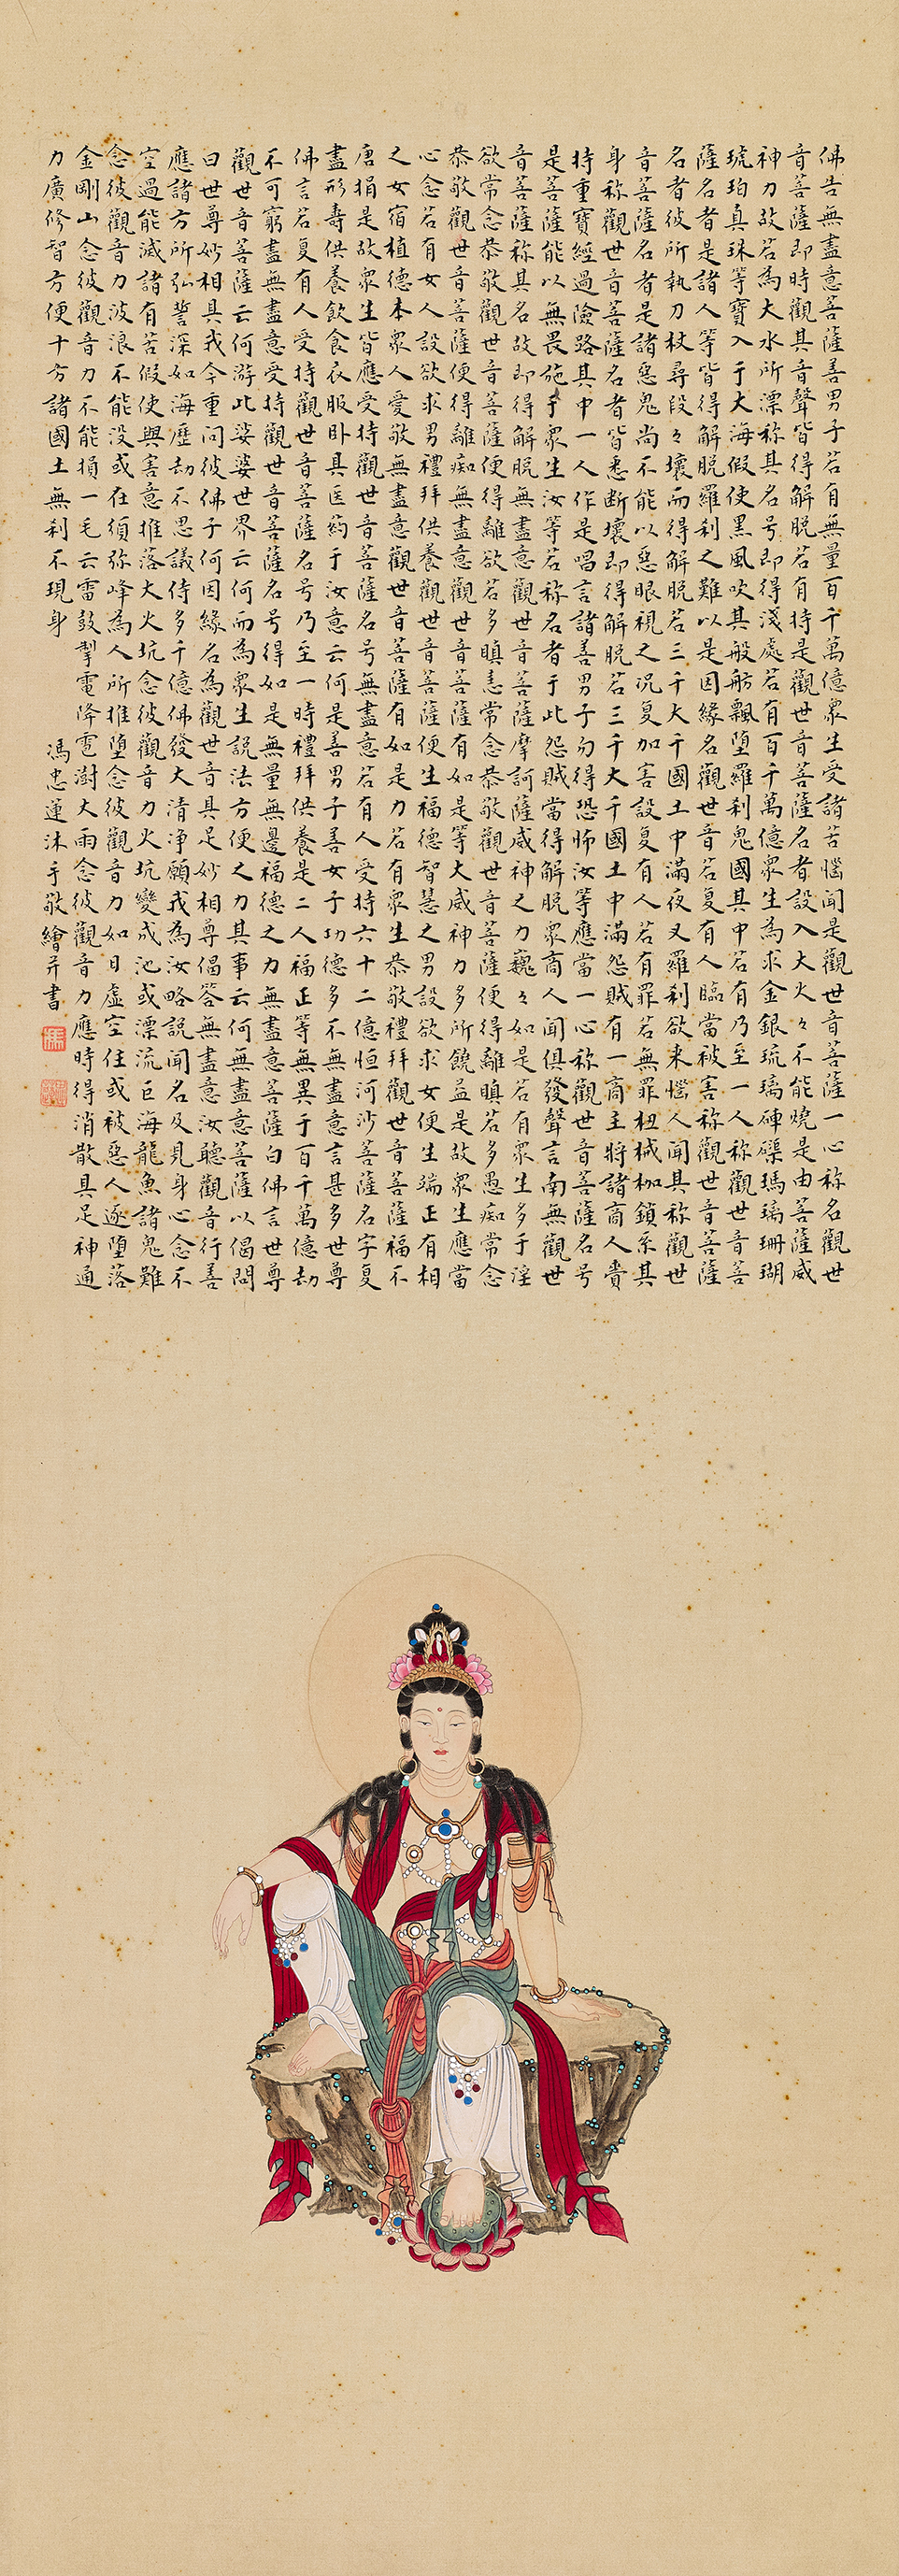 佛告無盡意菩薩善男子若有無量百千萬億眾生受諸苦惱聞是觀世音菩薩一心称名觀世
音菩薩即時觀其音聲皆得解脱若有持是觀世音菩薩名者設入大火々不能燒是由菩薩威
神力故若為大水所漂称其名号即得淺處若有百千萬億眾生為求金銀琉璃硨磲瑪瑙珊瑚
琥珀真珠等寶入于大海假使黑風吹其般舫飄堕羅刹鬼國其中若有乃至一人称觀世音菩
薩名者是諸人等皆得解脱羅刹之難以是因緣名觀世音若复有人臨當被害称觀世音菩薩
名者彼所執刀杖尋段々壞而得解脱若三千大千國土中滿夜叉羅刹欲来惱人聞其称觀世
音菩薩名者是諸惡鬼尚不能以惡眼視之况复加害設复有人若有罪若無罪杻械枷鎖系其
身称觀世音菩薩名者皆悉断壞即得解脱若三千大千國土中滿怨贼有一商主将諸商人賫
持重寶經過險路其中一人作是唱言諸善男子勿得恐怖汝等應當一心称觀世音菩薩名号
是菩薩能以無畏施于眾生汝等若称名者于此怨贼當得解脱眾商人聞俱發聲言南無觀世
音菩薩称其名故即得解脱無盡意觀世音菩薩摩訶薩威神之力巍々如是若有眾生多于淫
欲常念恭敬觀世音菩薩便得離欲若多瞋恚常念恭敬觀世音菩薩便得離瞋若多愚痴常念
恭敬觀世音菩薩便得離痴無盡意觀世音菩薩有如是等大威神力多所饒益是故眾生應當
心念若有女人設欲求男禮拜供養觀世音菩薩便生福德智慧之男設欲求女便生端正有相
之女宿植德本眾人愛敬無盡意觀世音菩薩有如是力若有眾生恭敬禮拜觀世音菩薩福不
唐捐是故眾生皆應受持觀世音菩薩名号無盡意若有人受持六十二億恒河沙菩薩名字复
盡形壽供養飲食衣服卧具医药于汝意云何是善男子善女子功德多不無盡意言甚多世尊
佛言若复有人受持觀世音菩薩名号乃至一時禮拜供養是二人福正等無異于百千萬億劫
不可窮盡無盡意受持觀世音菩薩名号得如是無量無邊福德之力無盡意菩薩白佛言世尊
觀世音菩薩云何游此娑婆世界云何而為眾生說法方便之力其事云何無盡意菩薩以偈問
曰世尊妙相具我今重问彼佛子何因緣名為觀世音具足妙相尊偈答無盡意汝聽觀音行善
應諸方所弘誓深如海歷劫不思議侍多千億佛發大清净願我為汝略說聞名及見身心念不
空過能滅諸有苦假使興害意推落大火坑念彼觀音力火坑變成池或漂流巨海龍魚諸鬼難
念彼觀音力波浪不能没或在須弥峰為人所推堕念彼觀音力如日虚空住或被惡人逐堕落
金剛山念彼觀音力不能損一毛云雷鼓掣電降雹澍大雨念彼觀音力應時得消散具足神通
力廣修智方便十方諸國土無刹不現身
馮忠蓮沐手敬繪并書